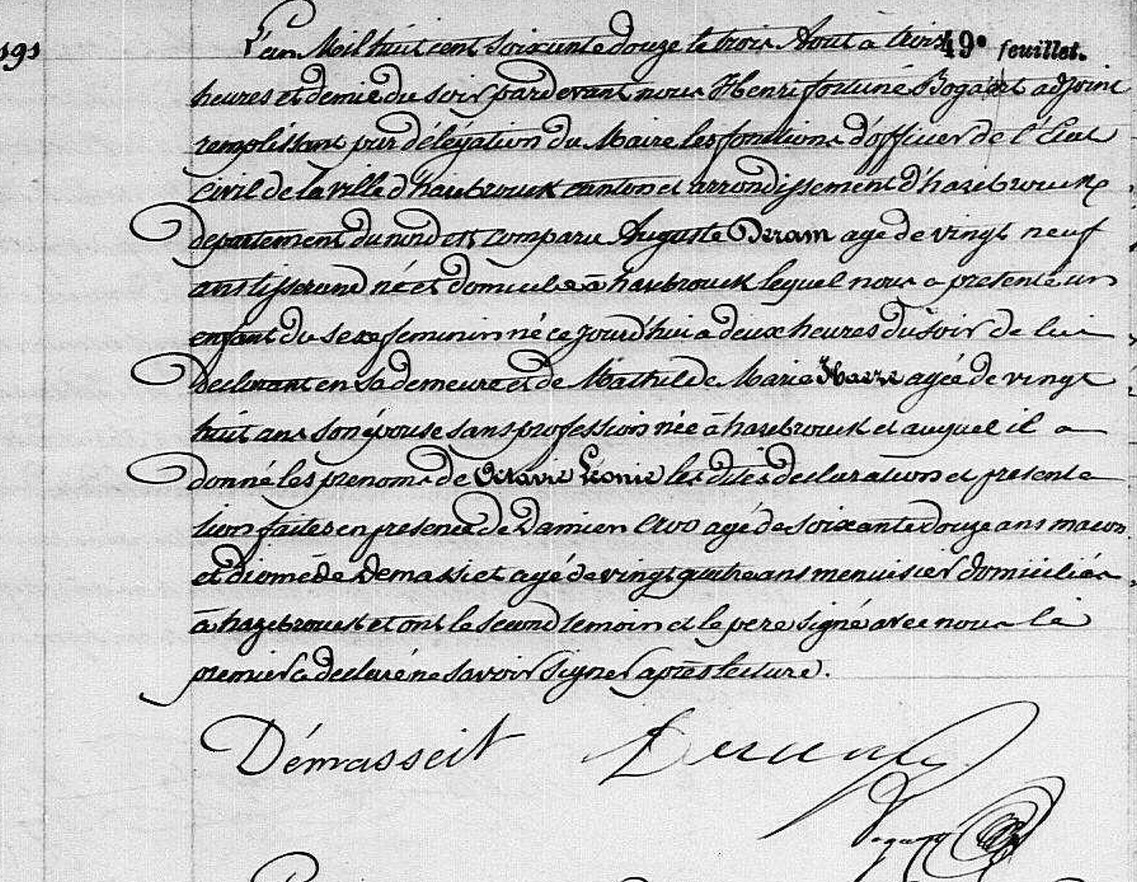 191
49e feuillet.
L'an Mil huit cent soixante douze le trois Aout à trois
heures et demie du soir pardevant nous Henri fortuné Bogaert adjoint
remplissant par délégation du Maire les fonctions d'officier de l'État
Civil de la ville d'hazebrouck canton et arrondissement d'hazebrouck
Département du nord est comparu Auguste Deram agé de vingt neuf
ans tisserand né et domicilié à hazebrouck lequel nous a présenté un
enfant du sexe feminin né ce jourd'hui a deux heures du soir de lui
Déclarant en sa demeure et de Mathilde Marie agée de vingt
huit ans son épouse sans profession née à hazebrouck et auquel il a
donné les prenoms de Octavie Léonie les dites déclaration et présenta
tion faites en presence de Damien agé de soixante douze ans macon
et diomède Demasseit agé de vingt quatre ans menuisier domiciliés
à hazebrouck et ont le second temoin et le pere signé avec nous le
premier a declaré ne savoir signer après lecture.
Démasseit Deram